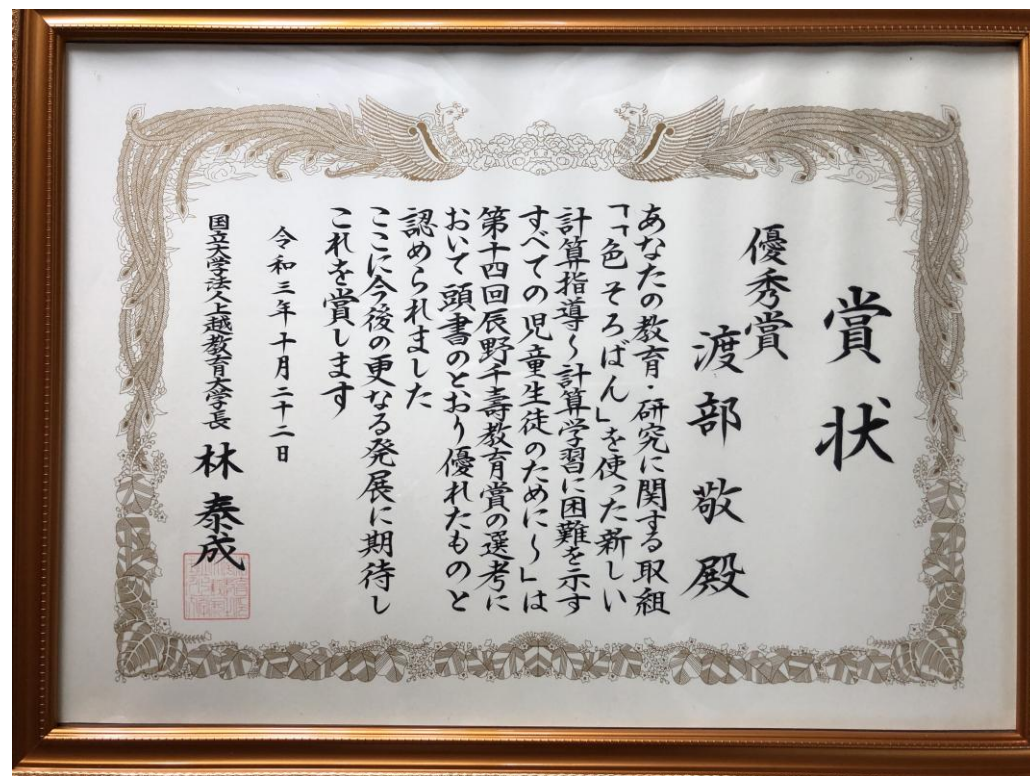 賞状
優秀賞
渡部敬殿
あなたの教育・研究に関する取組
「「色そろばん」を使った新しい
計算指導～計算学習に困難を示す
すべての児童生徒のために～」は
第十四回辰野千壽教育賞の選考に
おいて頭書のとおり優れたものと
認められました
ここに今後の更なる発展に期待し
これを賞します
令和三年十月二十二日
国立大学法人上越教育大学長 林泰成